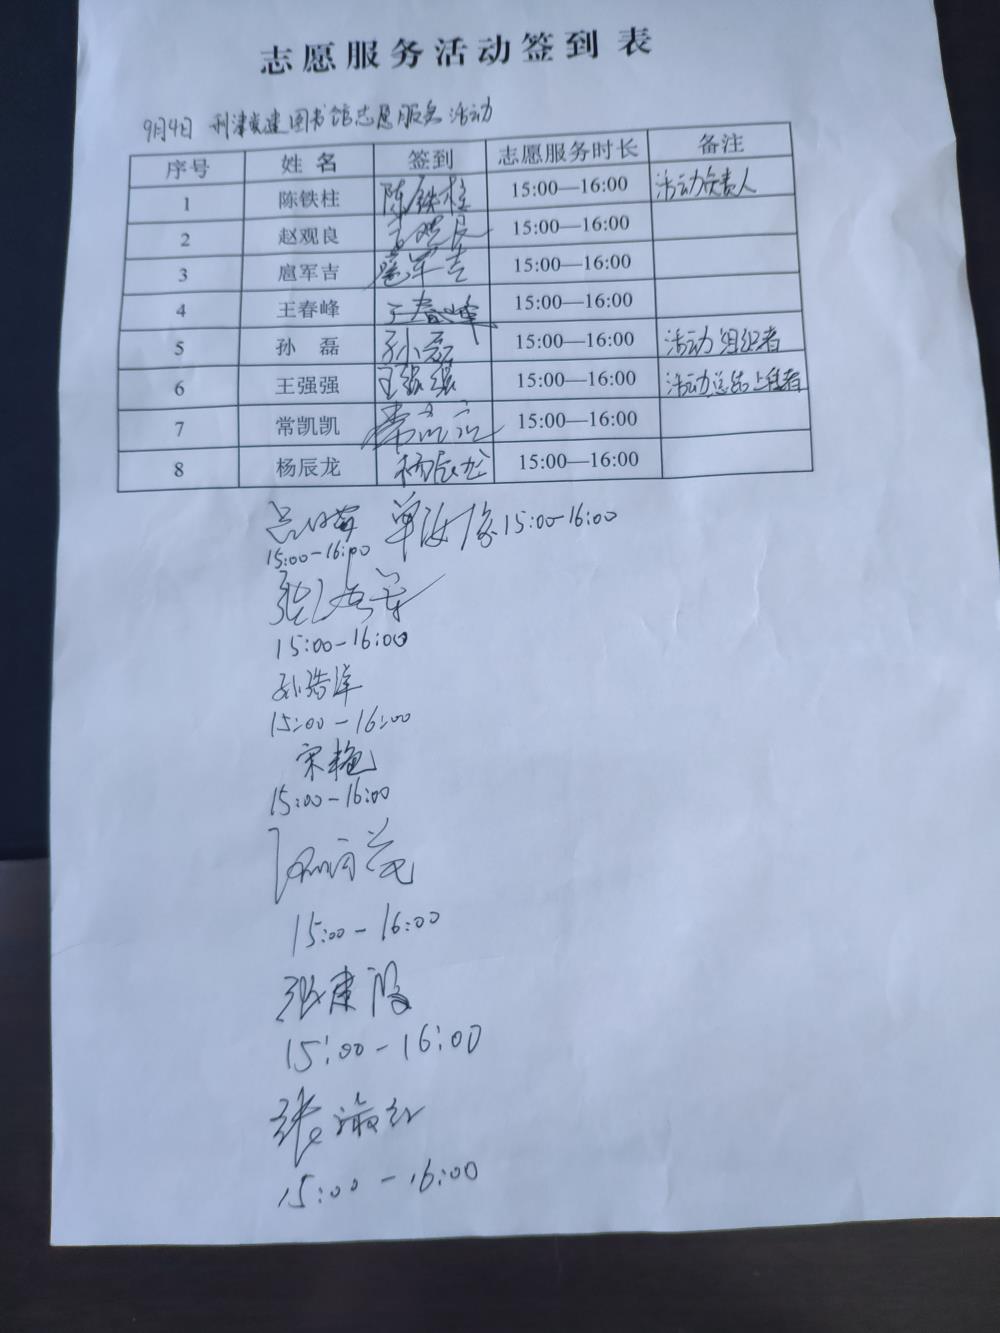 志愿服务活动签到表
9月4日 利津凤凰图书馆志愿服务活动
序号 姓名 签到 志愿服务时长 备注
1 陈铁柱 陈铁柱 15:00—16:00 活动负责人
2 赵观良 15:00—16:00
3 扈军吉 扈军吉 15:00—16:00
4 王春峰 王春峰 15:00—16:00
5 孙 磊 孙磊 15:00—16:00 活动组织者
6 王强强 王强强 15:00—16:00 活动总结上传者
7 常凯凯 15:00—16:00
8 杨辰龙 杨辰龙 15:00—16:00
15:00-16:00
15:00-16:00
15:00-16:00
孙浩洋
15:00-16:00
宋艳
15:00-16:00
15:00-16:00
15:00-16:00
15:00-16:00